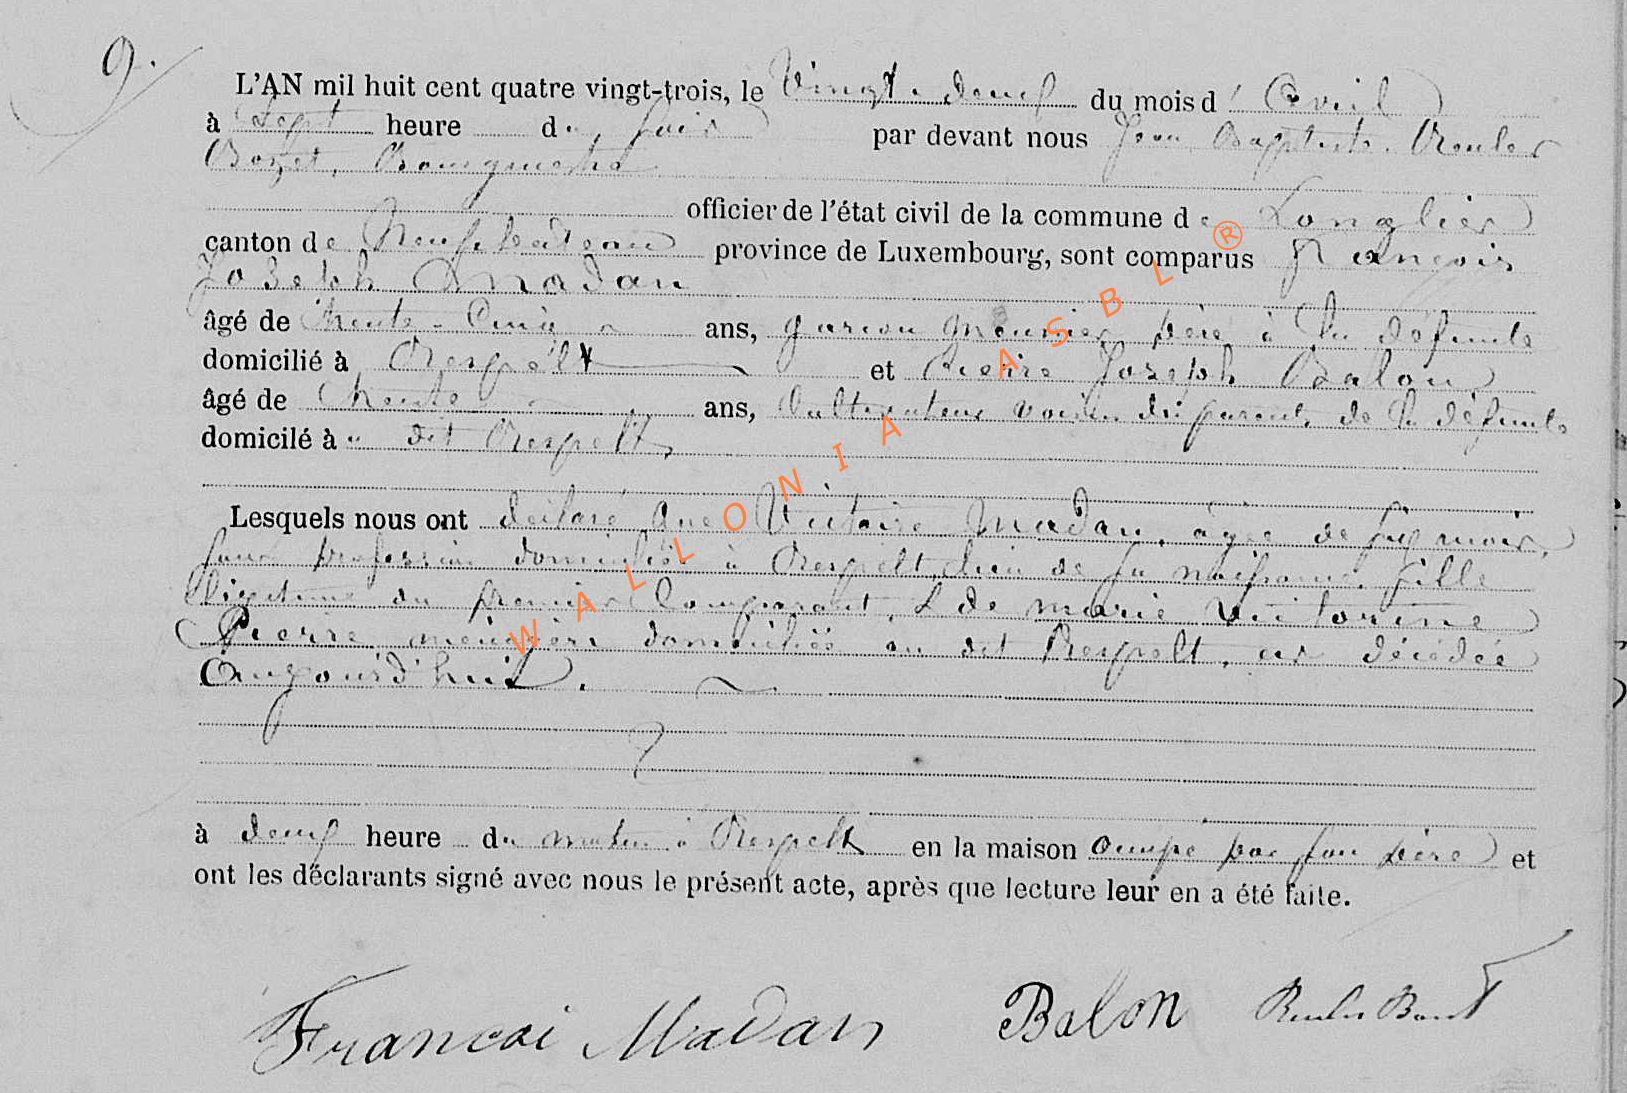 9.
L'AN mil huit cent quatre vingt-trois, le Vingt-deux du mois d'Avril
à Sept heure du soir par devant nous Jean Baptiste Reuler
Bozet, Bourgmestre
officier de l'état civil de la commune de Longlier
canton de Neufchateau province de Luxembourg, sont comparus François
Joseph Madan
âgé de trente-Cinq ans, garcon meunier père à la défunte
domicilié à Respelt et Pierre Joseph Balon
âgé de trente ans, Cultivateur voisin des parents de la défunte
domicilé à u dit Respelt,
Lesquels nous ont déclaré que Victoire Madan, âgée de six mois,
sans profession domiciliée à Respelt, lieu de sa naissance, fille
légitime du premier Comparant, & de marie Victorine
Pierre, ménagère domiciliée au dit Respelt, est décédée
Aujourd'huit.
à deux heure du matin à Respelt en la maison occupé par son père et
ont les déclarants signé avec nous le présent acte, après que lecture leur en a été faite.
Francoi Madan Balon
WALLONIA ASBL ®